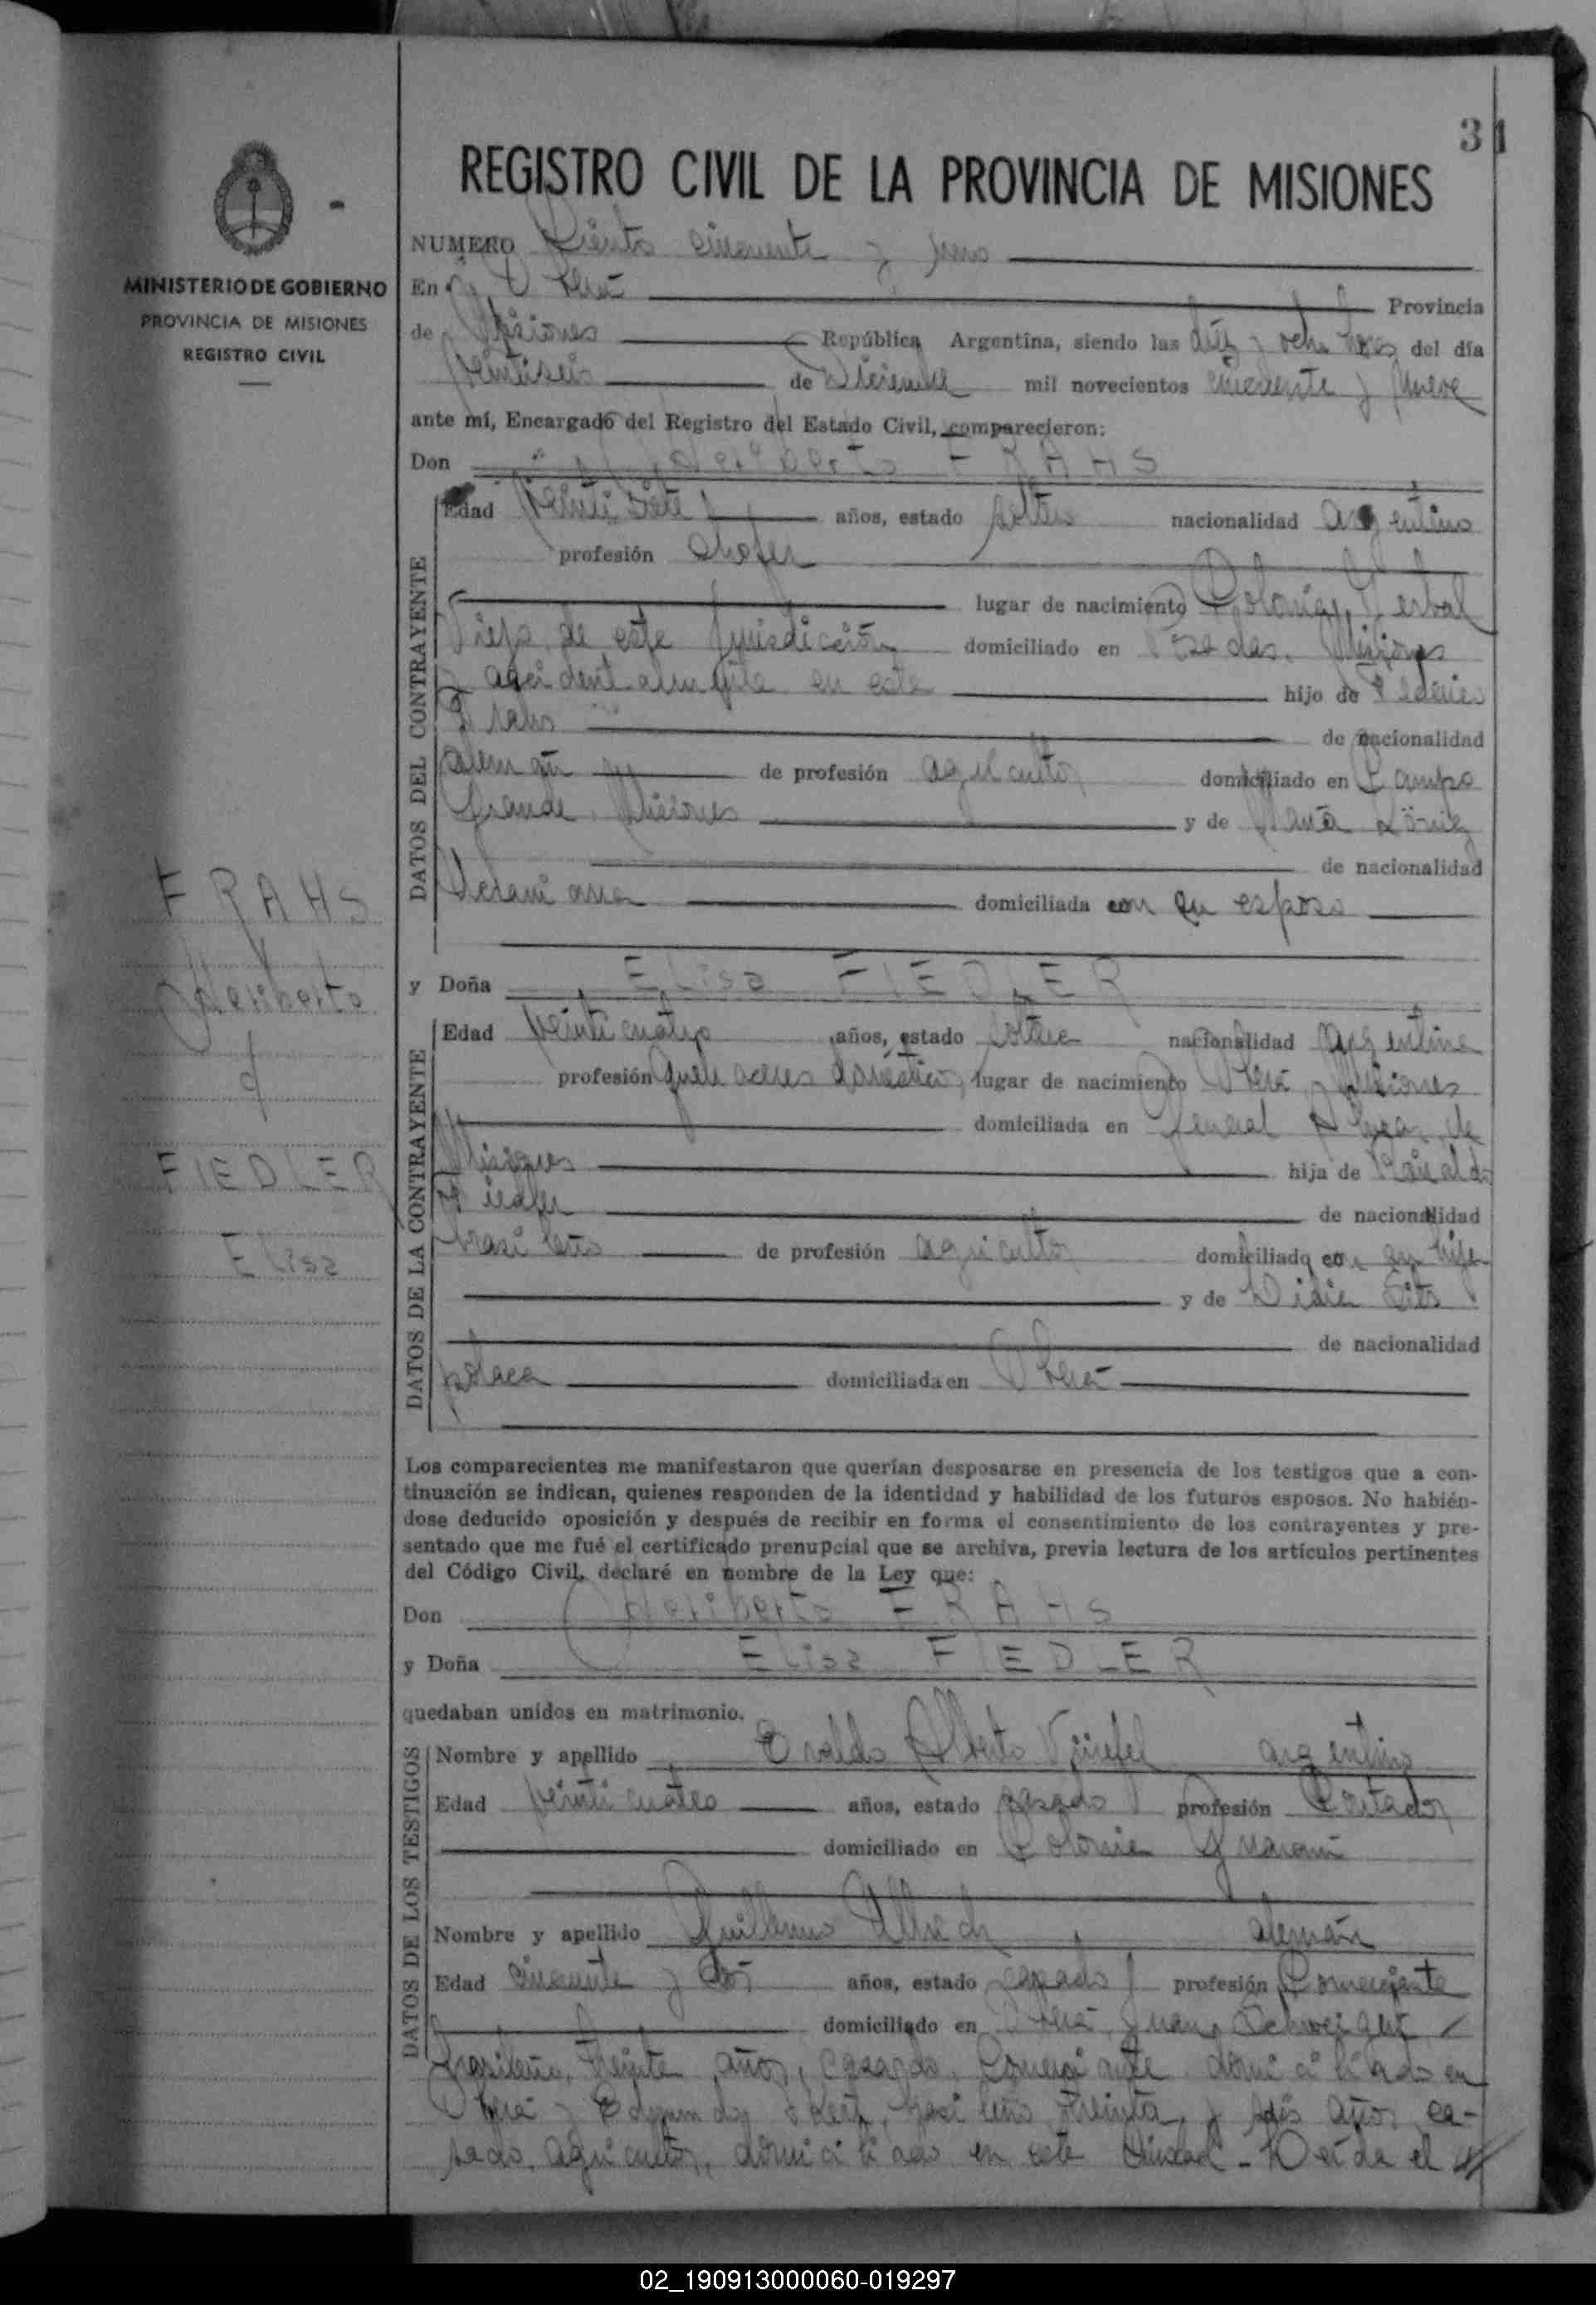 31
REGISTRO CIVIL DE LA PROVINCIA DE MISIONES
MINISTERIO DE GOBIERNO
PROVINCIA DE MISIONES
REGISTRO CIVIL
NUMERO Ciento cincuenta y uno
En Oberá Provincia
de Misiones República Argentina, siendo las diez y ocho horas del día
veintiseis de Diciembre mil novecientos cincuenta y nueve
ante mí, Encargado del Registro del Estado Civil, comparecieron:
Don Heriberto FRAHS
DATOS DEL CONTRAYENTE
Edad veinti siete años, estado soltero nacionalidad argentino
profesión chofer
lugar de nacimiento Colonia Yerbal
Viejo de este jurisdicción domiciliado en Posadas, Misiones
y accidentalmente en esta hijo de Federico
Frahs de nacionalidad
alemán de profesión agricultor domiciliado en Campo
Grande, Misiones y de María
de nacionalidad
domiciliada con su esposo
FRAHS
Heriberto
y Doña Elisa FIEDLER
DATOS DE LA CONTRAYENTE
Edad veinti cuatro años, estado soltera nacionalidad argentina
profesión quehaceres domésticos, lugar de nacimiento Oberá, Misiones
domiciliada en General Alvear de
Misiones hija de Reinaldo
Fiedler de nacionalidad
brasileño de profesión agricultor domiciliado con su hija
y de
de nacionalidad
polaca domiciliada en Oberá
FIEDLER
Elisa
Los comparecientes me manifestaron que querían desposarse en presencia de los testigos que a con-
tinuación se indican, quienes responden de la identidad y habilidad de los futuros esposos. No habién-
dose deducido oposición y después de recibir en forma el consentimiento de los contrayentes y pre-
sentado que me fué el certificado prenupcial que se archiva, previa lectura de los artículos pertinentes
del Código Civil, declaré en nombre de la Ley que:
Don Heriberto FRAHS
y Doña Elisa FIEDLER
quedaban unidos en matrimonio.
DATOS DE LOS TESTIGOS
Nombre y apellido Evaldo Alberto argentino
Edad veinti cuatro años, estado casado profesión Contador
domiciliado en Colonia Guaraní
Nombre y apellido Guillermo Albrecht, alemán
Edad cincuenta y dos años, estado casado profesión Comerciante
domiciliado en Oberá, Juan
brasileño, treinta años, casado, Comerciante domiciliado en
Oberá y brasileño treinta y seis años, ca-
sado, agricultor, domiciliado en esta Ciudad - Leída el
02_190913000060-019297